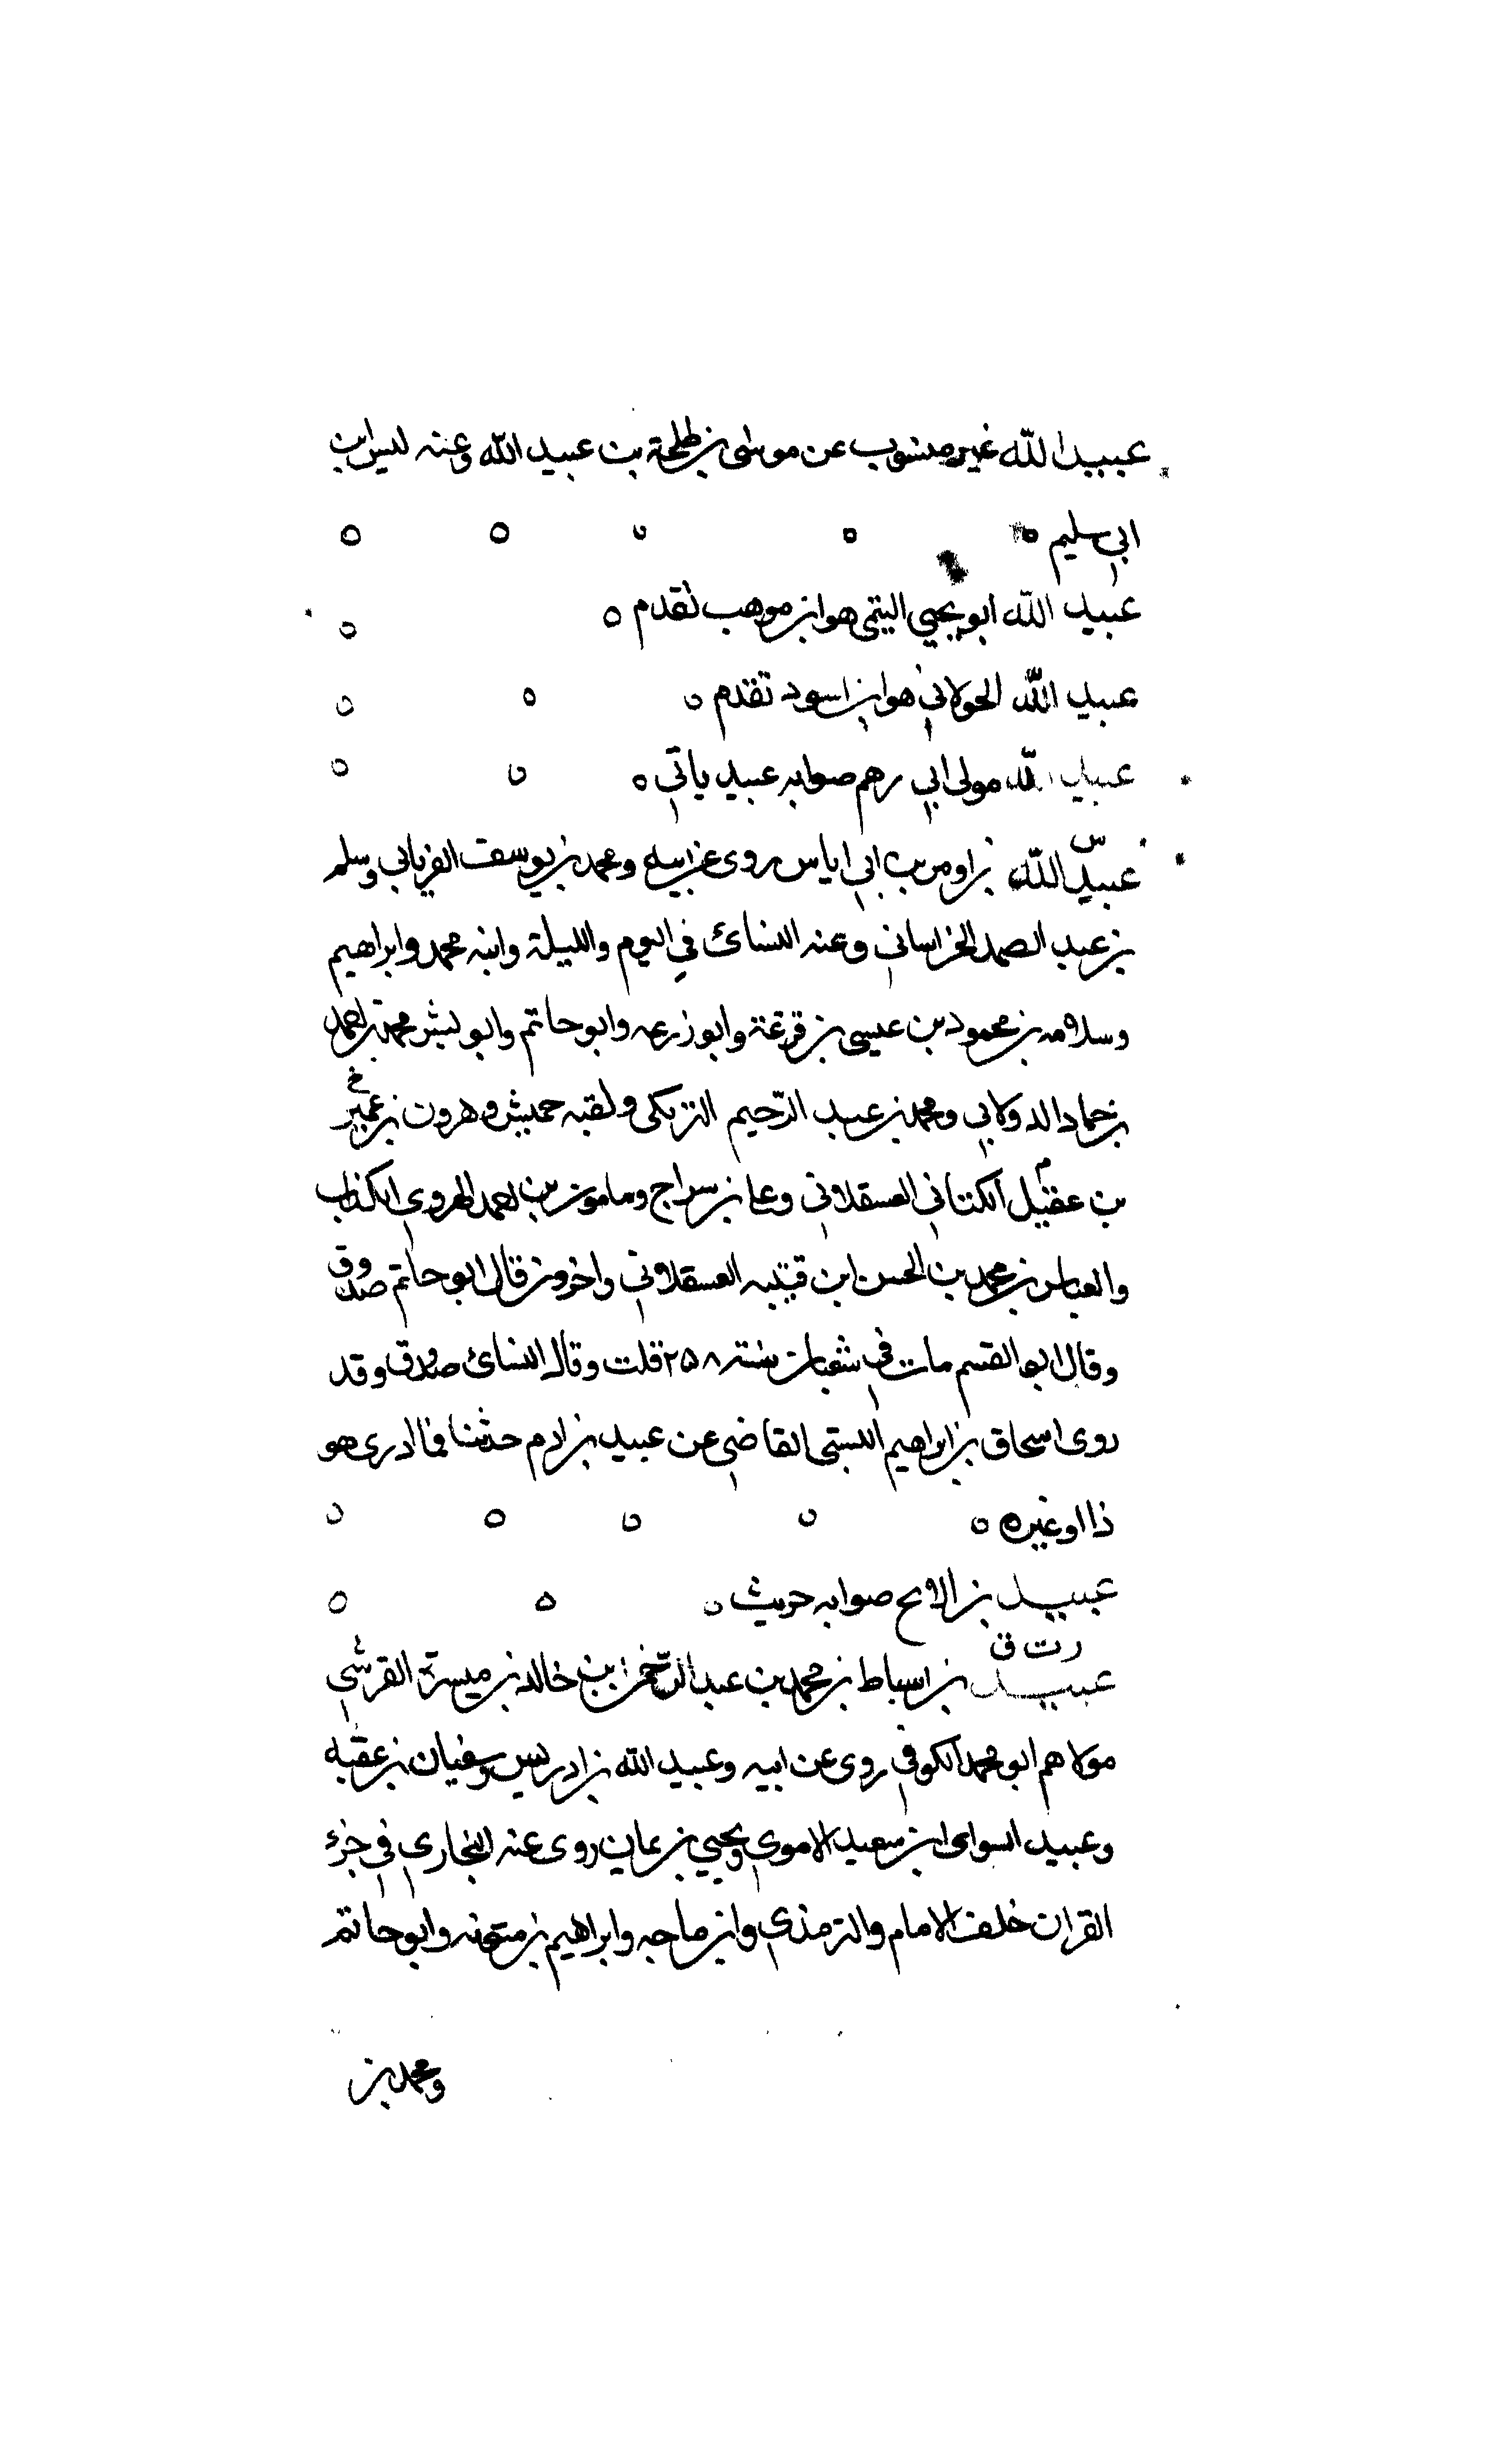 عبيد الله غير منسوب عن موسى بن طلحة بن عبيد الله وعنه ليس ابن
ابي سليم ٥ ٥ ٥ ٥ ٥
عبيد الله ابو يحيي التيمي هو ابن موهب تقدم ٥ ٥
عبيد الله الخولاني هو ابن اسود تقدم ٥ ٥ ٥
عبيد الله مولى ابي رهم صوابه عبيد ياتي ٥ ٥ ٥
س
عبيد الله بن اومرب ابي اياس روى عن ابيه ومحمد بن يوسف الفريابي وسلم
بن عبد الصمد الخراساني وعنه النسائ في اليوم والليلة وابنه محمد وابراهيم
وسلامه بن محمود بن عيسى بن قزعة وابو زرعه وابو حاتم وابو بشر محمد بن احمد
بن حماد الدولابي ومحمد بن عبد الرحيم التركي ولقبه حمبش وهرون بن
بن عقيل الكناني العسقلاني وعلي بن سراج ومامون بن احمد الهروي الكذاب
والعباس بن محمد بن الحسن ابن قتيبه العسقلاني واخرون قال ابو حاتم صدوق
وقال ابو القسم مات في شعبان سنة ٢٥٨ قلت وقال النسائ صدوق وقد
روى اسحاق بن ابراهيم البستي القاضي عن عبيد بن ادم حدثنا فما ادرى هو
ذا او غيره ٥ ٥ ٥ ٥ ٥
عبيد بن صوابه حريث ٥ ٥ ٥
ر ت ق
عبيد بن اسباط بن محمد بن عبد الرحمن بن خالد بن ميسرة القرشي
مولاهم ابو محمد الكوفي روى عن ابيه وعبيد الله بن ادريس وسفيان بن عقبه
وعبيد ابن سعيد الاموي ويحيي بن يمان روى عنه البخاري في جزء
القران خلف الامام والترمذي وابن ماجه وابراهيم بن متويه وابو حاتم
ومحمد بن